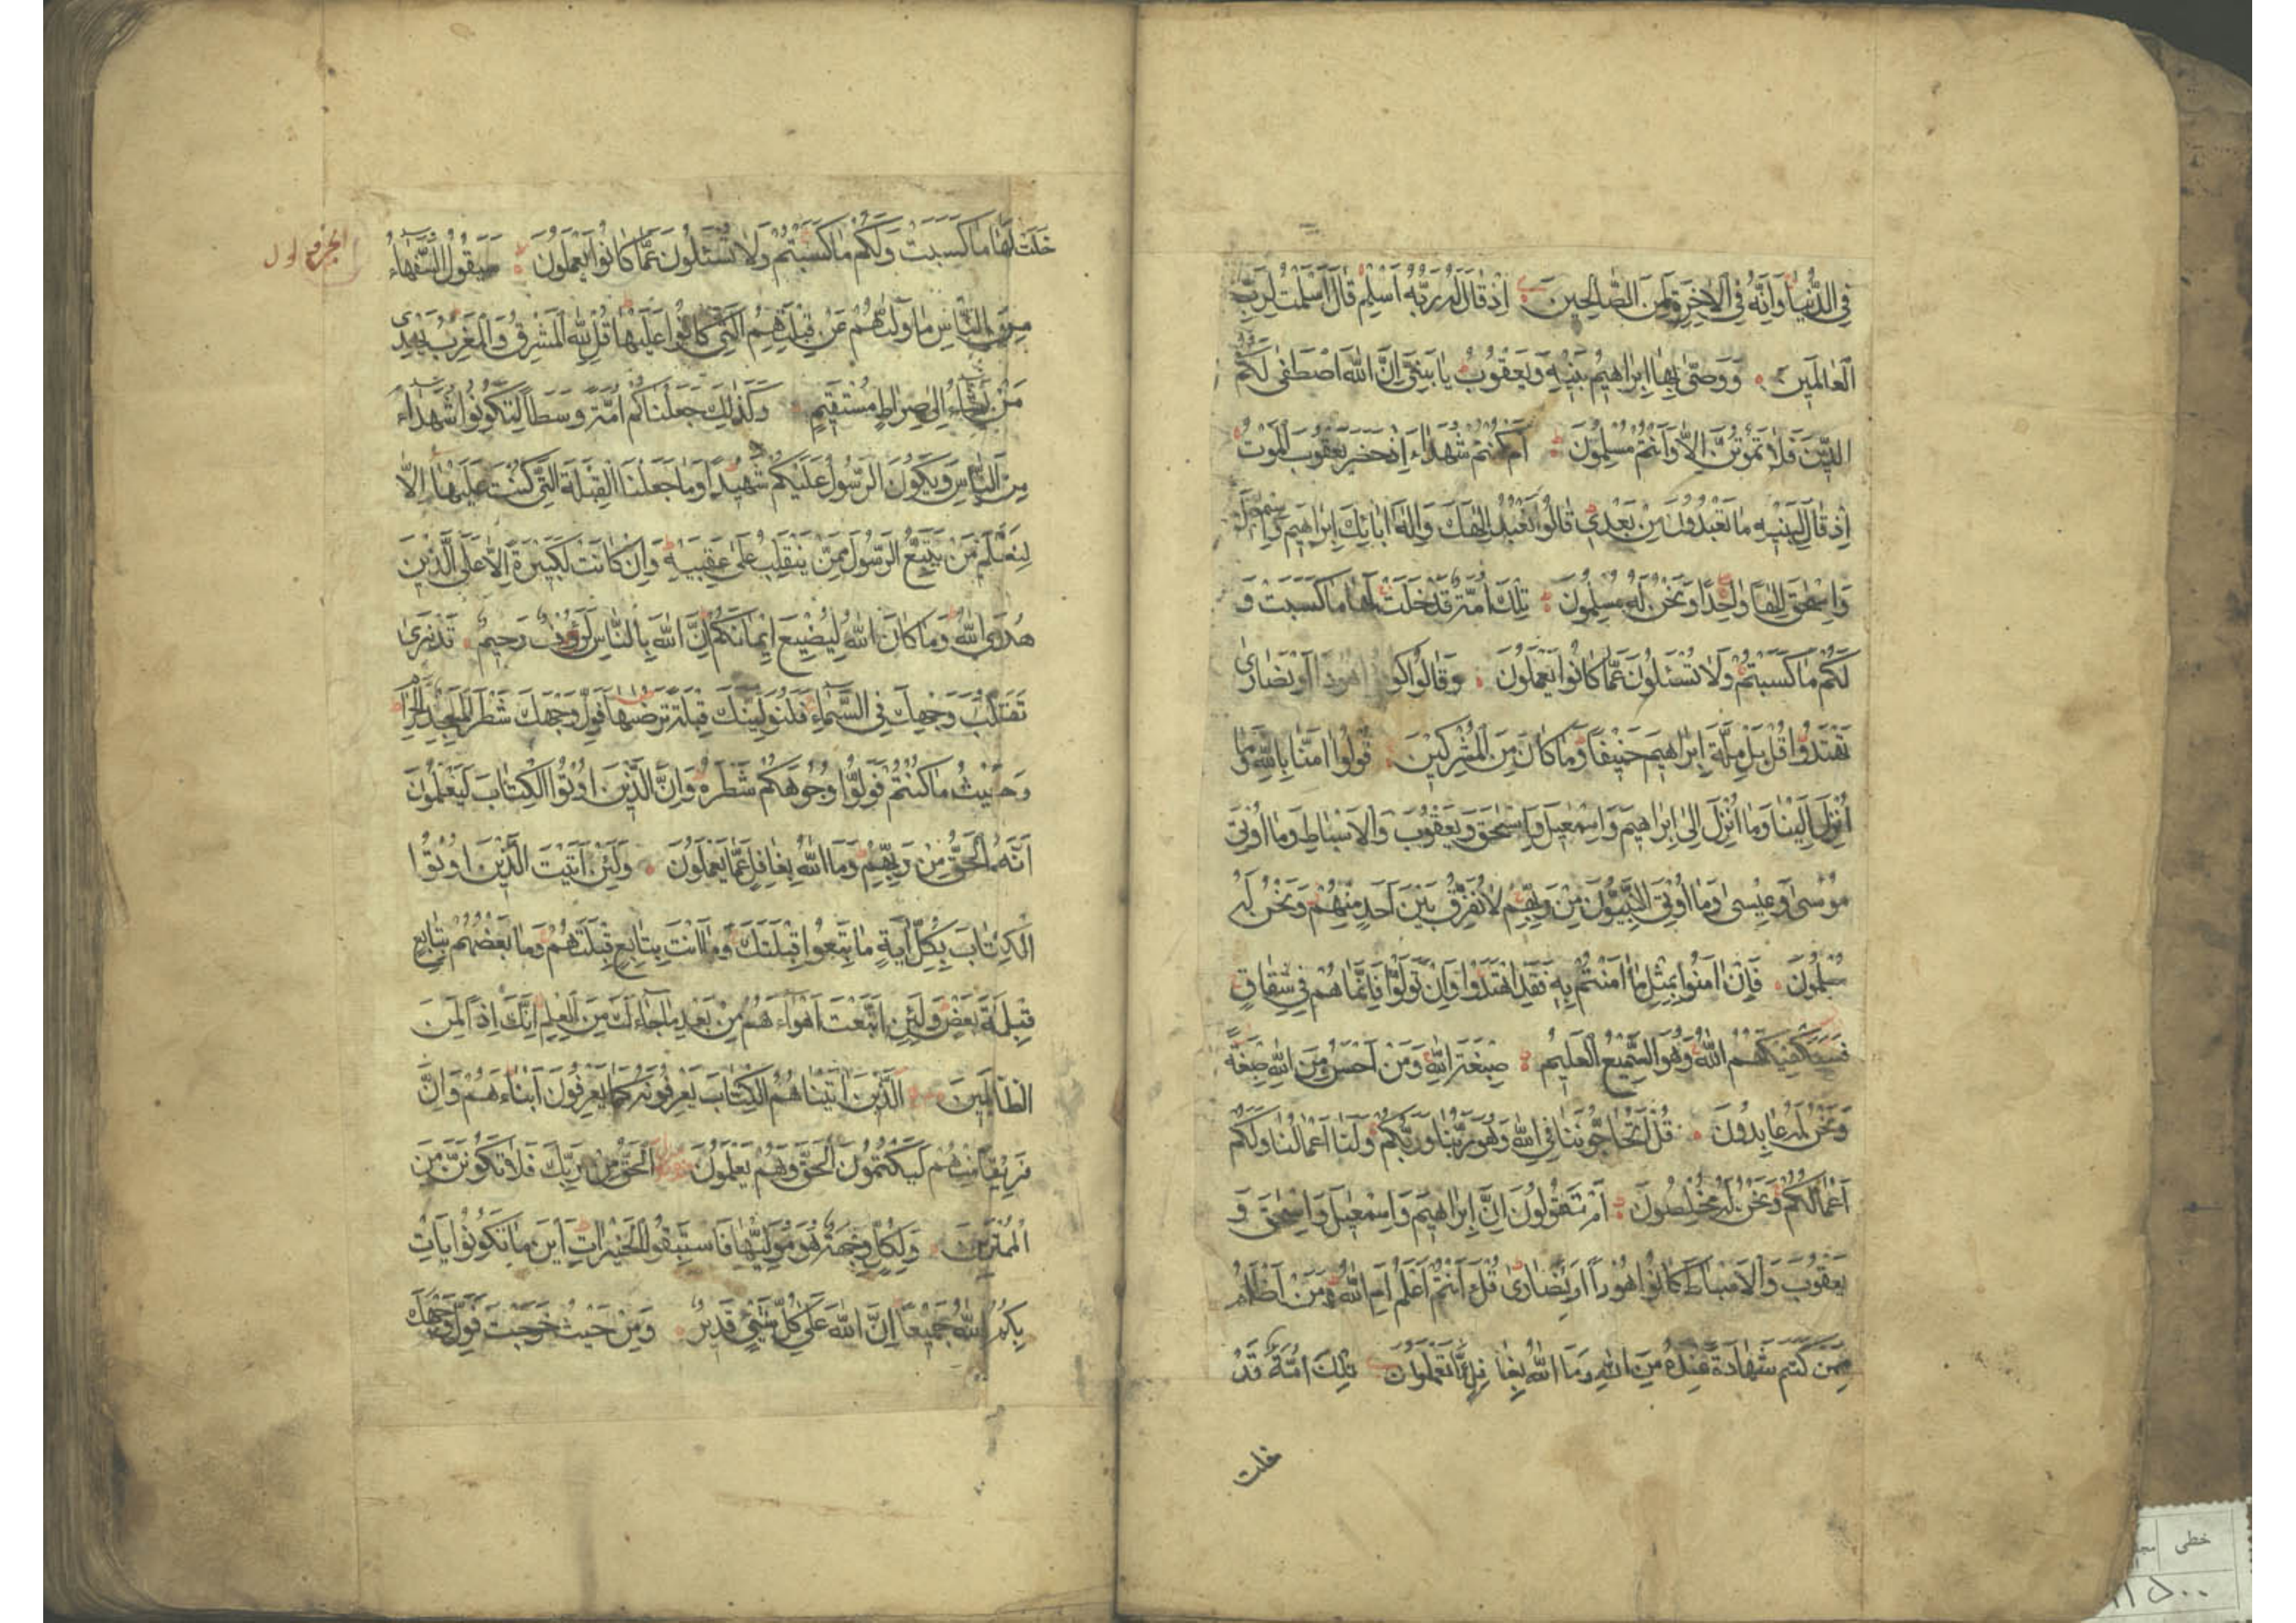 فِي الدُّنْيَا وَاِنَّهُ فِي الْاٰخِرَةِ لَمِنَ الصَّالِحِينَ اِذْ قَالَ لَهُ رَبُّهُ اَسْلِمْ قَالَ اَسْلَمْتُ لِرَبِّ
الْعَالَمِينَ وَوَصّٰى بِهَا اِبْرَاهِيمُ بَنِيهِ وَيَعْقُوبُ يَا بَنِيَّ اِنَّ اللهَ اصْطَفٰى لَكُمُ
الدِّينَ فَلَا تَمُوتُنَّ اِلَّا وَاَنْتُمْ مُسْلِمُونَ اَمْ كُنْتُمْ شُهَدَاءَ اِذْ حَضَرَ يَعْقُوبَ الْمَوْتُ
اِذْ قَالَ لِبَنِيهِ مَا تَعْبُدُونَ مِنْ بَعْدِي قَالُوا نَعْبُدُ اِلٰهَكَ وَاِلٰهَ اٰبَائِكَ اِبْرَاهِيمَ وَاِسْمٰعِيلَ
وَاِسْحٰقَ اِلٰهًا وَاحِدًا وَنَحْنُ لَهُ مُسْلِمُونَ تِلْكَ اُمَّةٌ قَدْ خَلَتْ لَهَا مَا كَسَبَتْ وَ
لَكُمْ مَا كَسَبْتُمْ وَلَا تُسْئَلُونَ عَمَّا كَانُوا يَعْمَلُونَ وَقَالُوا كُونُوا هُودًا اَوْ نَصَارٰى
تَهْتَدُوا قُلْ بَلْ مِلَّةَ اِبْرَاهِيمَ حَنِيفًا وَمَا كَانَ مِنَ الْمُشْرِكِينَ قُولُوا اٰمَنَّا بِاللهِ وَمَا
اُنْزِلَ اِلَيْنَا وَمَا اُنْزِلَ اِلٰى اِبْرَاهِيمَ وَاِسْمٰعِيلَ وَاِسْحٰقَ وَيَعْقُوبَ وَالْاَسْبَاطِ وَمَا اُوتِيَ
مُوسٰى وَعِيسٰى وَمَا اُوتِيَ النَّبِيُّونَ مِنْ رَبِّهِمْ لَا نُفَرِّقُ بَيْنَ اَحَدٍ مِنْهُمْ وَنَحْنُ لَهُ
مُسْلِمُونَ فَاِنْ اٰمَنُوا بِمِثْلِ مَا اٰمَنْتُمْ بِهِ فَقَدِ اهْتَدَوْا وَاِنْ تَوَلَّوْا فَاِنَّمَا هُمْ فِي شِقَاقٍ
فَسَيَكْفِيكَهُمُ اللهُ وَهُوَ السَّمِيعُ الْعَلِيمُ صِبْغَةَ اللهِ وَمَنْ اَحْسَنُ مِنَ اللهِ صِبْغَةً
وَنَحْنُ لَهُ عَابِدُونَ قُلْ اَتُحَاجُّونَنَا فِي اللهِ وَهُوَ رَبُّنَا وَرَبُّكُمْ وَلَنَا اَعْمَالُنَا وَلَكُمْ
اَعْمَالُكُمْ وَنَحْنُ لَهُ مُخْلِصُونَ اَمْ تَقُولُونَ اِنَّ اِبْرَاهِيمَ وَاِسْمٰعِيلَ وَاِسْحٰقَ وَ
يَعْقُوبَ وَالْاَسْبَاطَ كَانُوا هُودًا اَوْ نَصَارٰى قُلْ ءَاَنْتُمْ اَعْلَمُ اَمِ اللهُ وَمَنْ اَظْلَمُ
مِمَّنْ كَتَمَ شَهَادَةً عِنْدَهُ مِنَ اللهِ وَمَا اللهُ بِغَافِلٍ عَمَّا تَعْمَلُونَ تِلْكَ اُمَّةٌ قَدْ
خلت
خَلَتْ لَهَا مَا كَسَبَتْ وَلَكُمْ مَا كَسَبْتُمْ وَلَا تُسْئَلُونَ عَمَّا كَانُوا يَعْمَلُونَ سَيَقُولُ السُّفَهَاءُ
الجزو
مِنَ النَّاسِ مَا وَلّٰيهُمْ عَنْ قِبْلَتِهِمُ الَّتِي كَانُوا عَلَيْهَا قُلْ لِلّٰهِ الْمَشْرِقُ وَالْمَغْرِبُ يَهْدِي
مَنْ يَشَاءُ اِلٰى صِرَاطٍ مُسْتَقِيمٍ وَكَذٰلِكَ جَعَلْنَاكُمْ اُمَّةً وَسَطًا لِتَكُونُوا شُهَدَاءَ
مِنَ النَّاسِ وَيَكُونَ الرَّسُولُ عَلَيْكُمْ شَهِيدًا وَمَا جَعَلْنَا الْقِبْلَةَ الَّتِي كُنْتَ عَلَيْهَا اِلَّا
لِنَعْلَمَ مَنْ يَتَّبِعُ الرَّسُولَ مِمَّنْ يَنْقَلِبُ عَلٰى عَقِبَيْهِ وَاِنْ كَانَتْ لَكَبِيرَةً اِلَّا عَلَى الَّذِينَ
هَدَى اللهُ وَمَا كَانَ اللهُ لِيُضِيعَ اِيمَانَكُمْ اِنَّ اللهَ بِالنَّاسِ لَرَؤُفٌ رَحِيمٌ قَدْ نَرٰى
تَقَلُّبَ وَجْهِكَ فِي السَّمَاءِ فَلَنُوَلِّيَنَّكَ قِبْلَةً تَرْضٰيهَا فَوَلِّ وَجْهَكَ شَطْرَ الْمَسْجِدِ الْحَرَامِ
وَحَيْثُ مَا كُنْتُمْ فَوَلُّوا وُجُوهَكُمْ شَطْرَهُ وَاِنَّ الَّذِينَ اُوتُوا الْكِتَابَ لَيَعْلَمُونَ
اَنَّهُ الْحَقُّ مِنْ رَبِّهِمْ وَمَا اللهُ بِغَافِلٍ عَمَّا يَعْمَلُونَ وَلَئِنْ اَتَيْتَ الَّذِينَ اُوتُوا
الْكِتَابَ بِكُلِّ اٰيَةٍ مَا تَبِعُوا قِبْلَتَكَ وَمَا اَنْتَ بِتَابِعٍ قِبْلَتَهُمْ وَمَا بَعْضُهُمْ بِتَابِعٍ
قِبْلَةَ بَعْضٍ وَلَئِنِ اتَّبَعْتَ اَهْوَاءَهُمْ مِنْ بَعْدِ مَا جَاءَكَ مِنَ الْعِلْمِ اِنَّكَ اِذًا لَمِنَ
الظَّالِمِينَ الَّذِينَ اٰتَيْنَاهُمُ الْكِتَابَ يَعْرِفُونَهُ كَمَا يَعْرِفُونَ اَبْنَاءَهُمْ وَاِنَّ
فَرِيقًا مِنْهُمْ لَيَكْتُمُونَ الْحَقَّ وَهُمْ يَعْلَمُونَ اَلْحَقُّ مِنْ رَبِّكَ فَلَا تَكُونَنَّ مِنَ
الْمُمْتَرِينَ وَلِكُلٍّ وِجْهَةٌ هُوَ مُوَلِّيهَا فَاسْتَبِقُوا الْخَيْرَاتِ اَيْنَ مَا تَكُونُوا يَاْتِ
بِكُمُ اللهُ جَمِيعًا اِنَّ اللهَ عَلٰى كُلِّ شَيْءٍ قَدِيرٌ وَمِنْ حَيْثُ خَرَجْتَ فَوَلِّ وَجْهَكَ
خطی